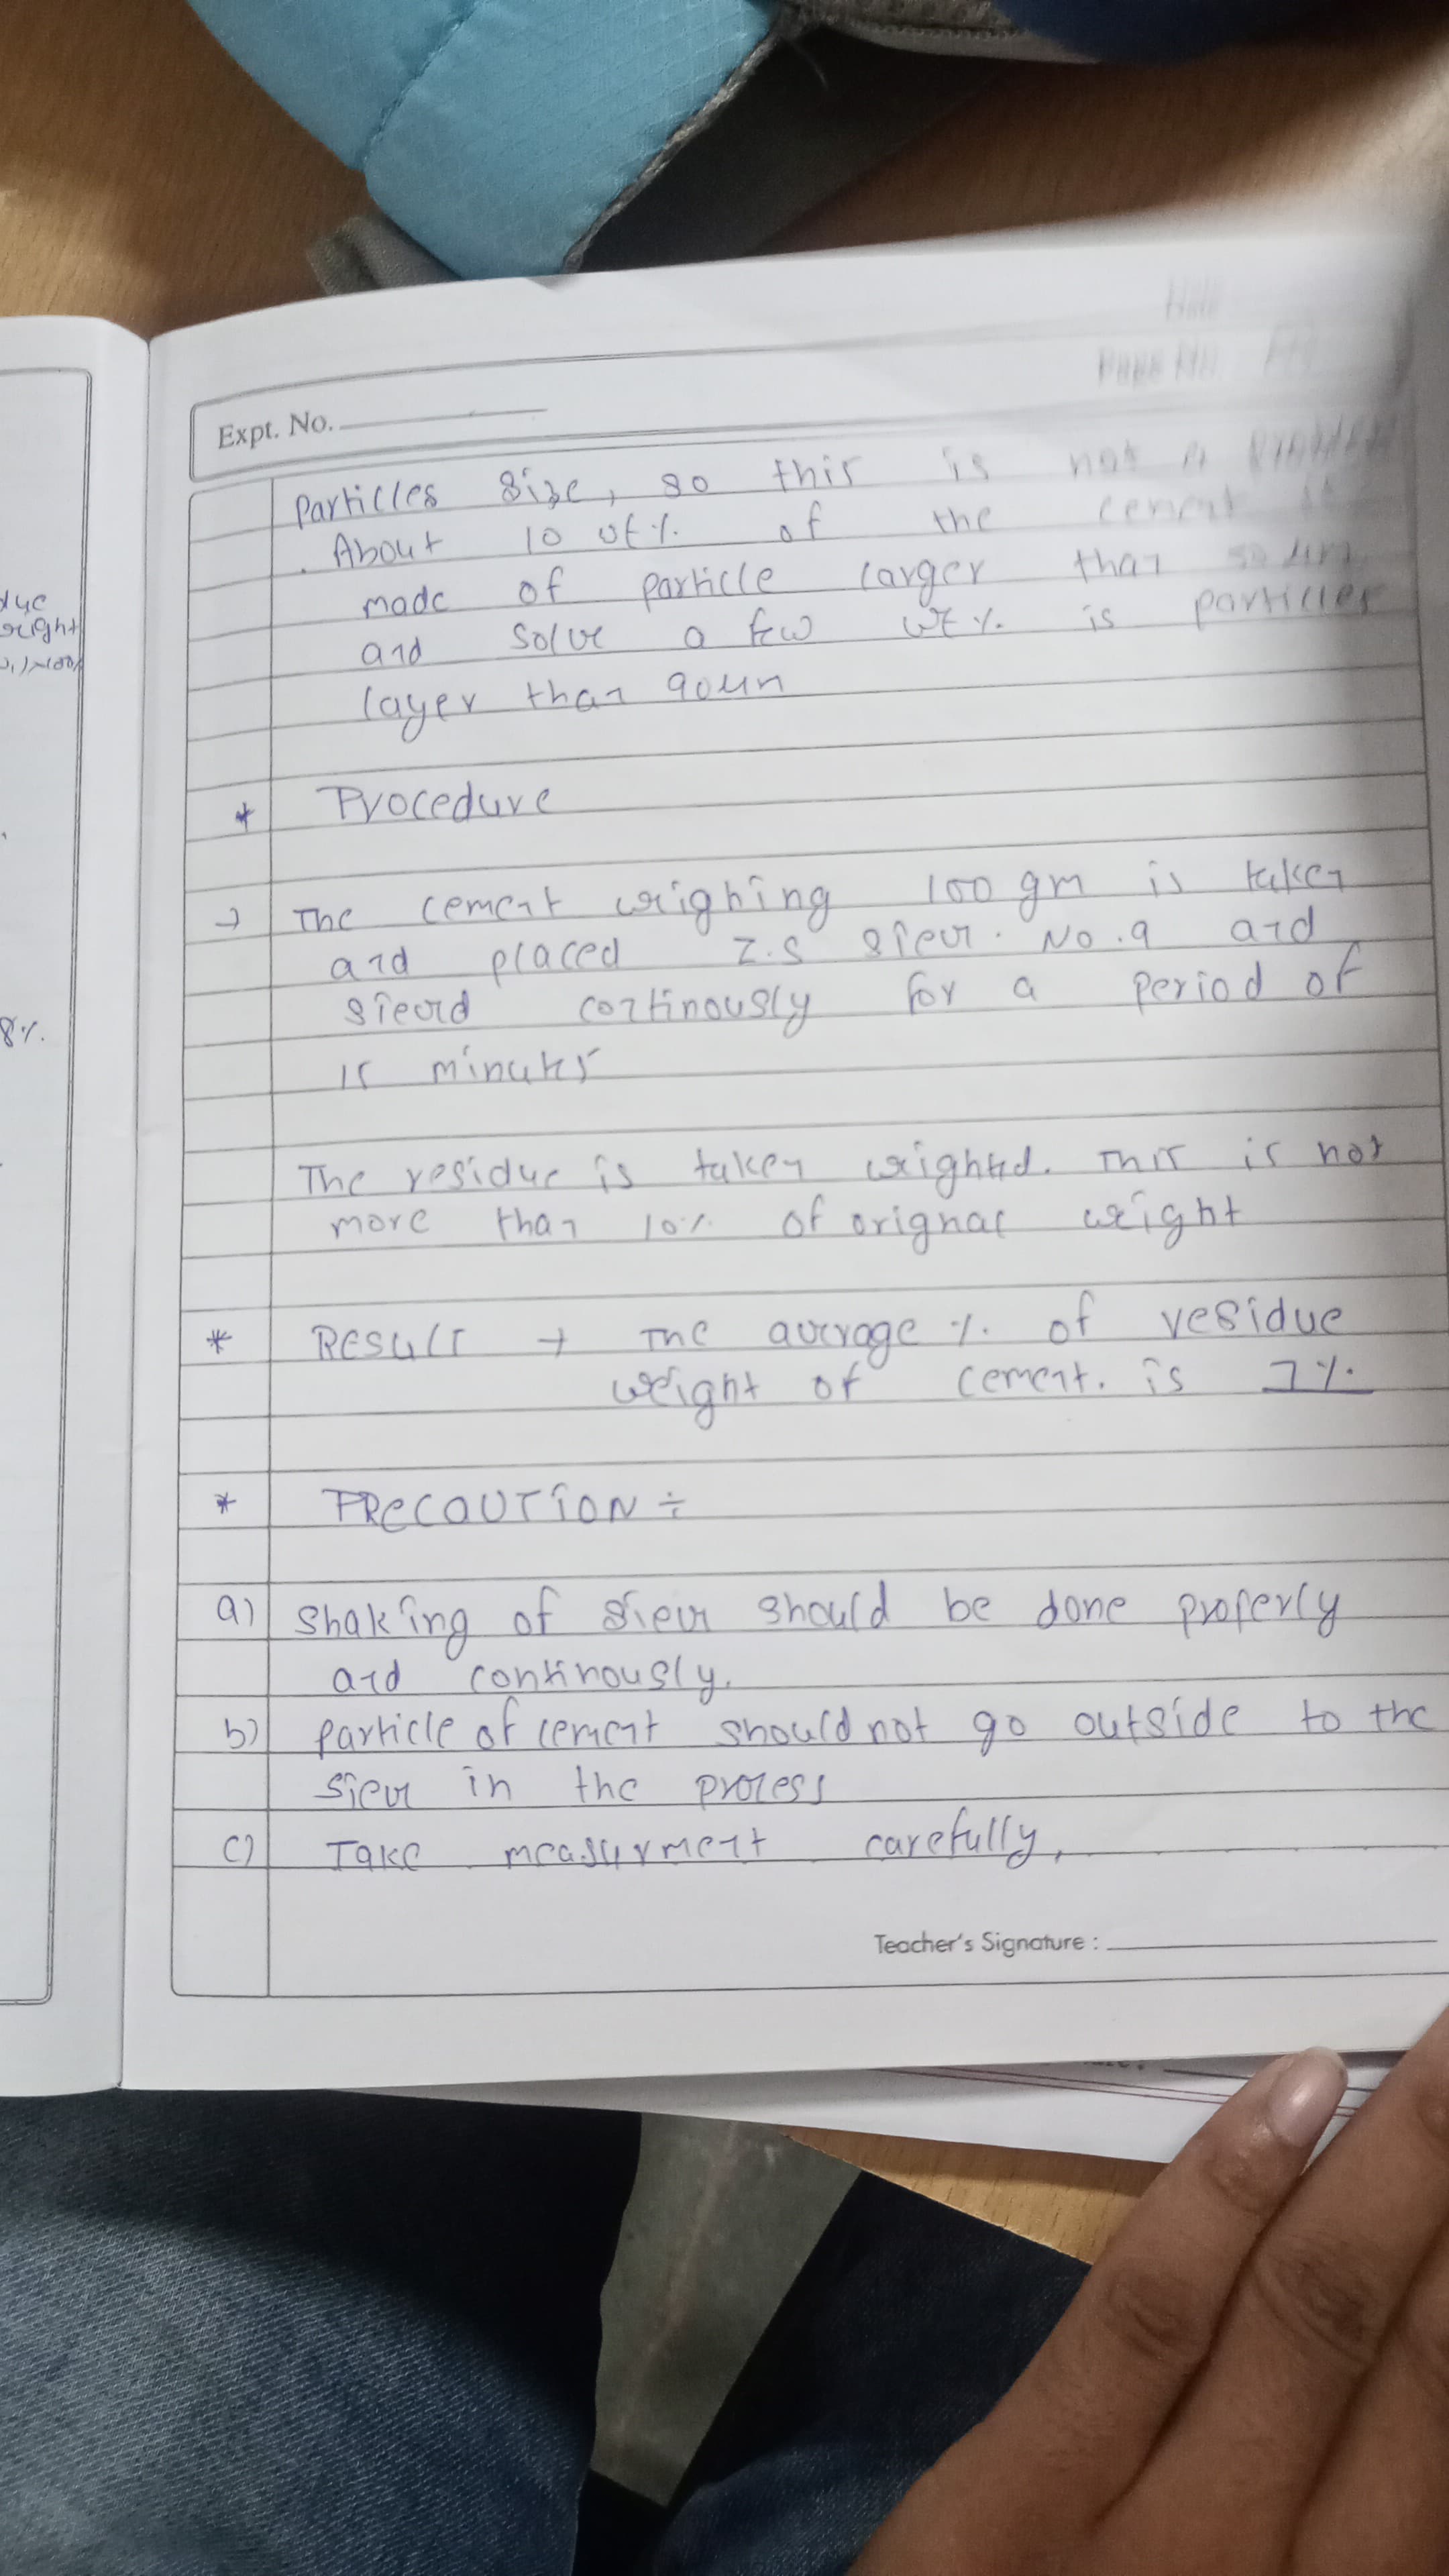 due
weight
8%.
Expt. No.
Particles size, so this is not a
. About 10 wt% of the cement is
made of particle larger than 50 um
and solve a few wt% is particles
layer than 90un
* Procedure
→ The cement weighing 100 gm is taken
and placed I.S sieve. No.9 and
sieved continously for a period of
15 minutes
The residue is taken weighted. This is not
more than 10% of orignal weight
* RESULT → The average % of residue
weight of cement. is 7%.
* PRECAUTION ÷
a) Shaking of sieve should be done properly
and continously.
b) particle of cement should not go outside to the
sieve in the process
c) Take measurment carefully,
Teacher's Signature :